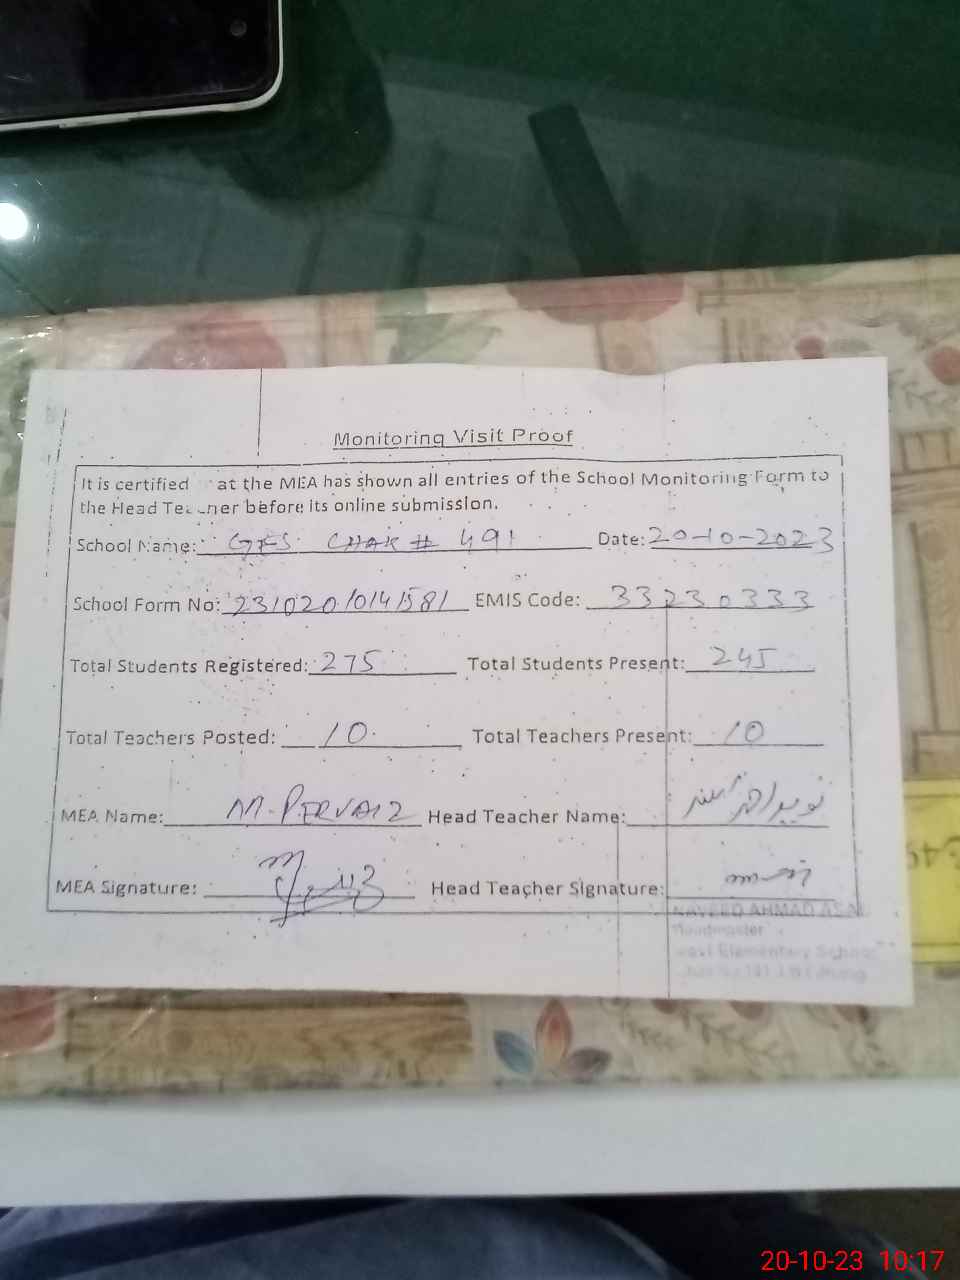 Monitoring Visit Proof
It is certified at the MEA has shown all entries of the School Monitoring Form to
the Head Teacner before its online submission.
School Name: GES CHAK # 491 Date: 20-10-2023
School Form No: 23102010141581 EMIS Code: 33230333
Total Students Registered: 275 Total Students Present: 245
Total Teachers Posted: 10 Total Teachers Present: 10
MEA Name: M. PERVAIZ Head Teacher Name: نوید احمد
MEA Signature: Head Teacher Signature:
NAVEED AHMAD
Headmaster
Elementary School
Jhang
20-10-23 10:17